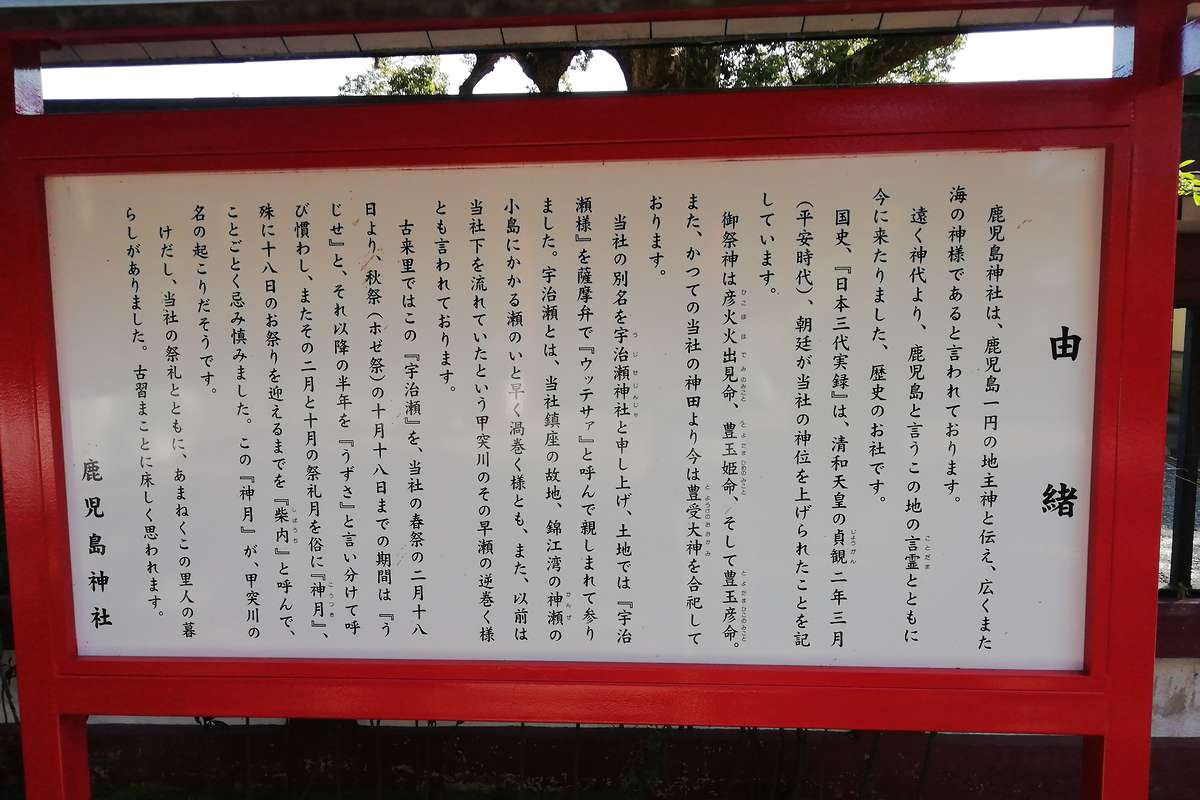 由緒
鹿児島神社は、鹿児島一円の地主神と伝え、広くまた
海の神様であると言われております。
遠く神代より、鹿児島と言うこの地の言霊とともに
今に来たりました、歴史のお社です。
国史、『日本三代実録』は、清和天皇の貞観二年三月
（平安時代）、朝廷が当社の神位を上げられたことを記
しています。
御祭神は彦火火出見命、豊玉姫命、そして豊玉彦命。
また、かつての当社の神田より今は豊受大神を合祀して
おります。
当社の別名を宇治瀬神社と申し上げ、土地では『宇治
瀬様』を薩摩弁で『ウッテサァ』と呼んで親しまれて参り
ました。宇治瀬とは、当社鎮座の故地、錦江湾の神瀬の
小島にかかる瀬のいと早く渦巻く様とも、また、以前は
当社下を流れていたという甲突川のその早瀬の逆巻く様
とも言われております。
古来里ではこの『宇治瀬』を、当社の春祭の二月十八
日より、秋祭（ホゼ祭）の十月十八日までの期間は『う
じせ』と、それ以降の半年を『うずさ』と言い分けて呼
び慣わし、またその二月と十月の祭礼月を俗に『神月』、
殊に十八日のお祭りを迎えるまでを『柴内』と呼んで、
ことごとく忌み慎みました。この『神月』が、甲突川の
名の起こりだそうです。
けだし、当社の祭礼とともに、あまねくこの里人の暮
らしがありました。古習まことに床しく思われます。
鹿児島神社